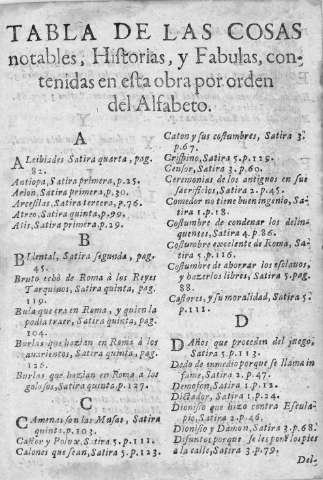 TABLA DE LAS COSAS
notables, Historias, y Fabulas, con-
tenidas en esta obra por orden
del Alfabeto.
A
ALcibiades Satira quarta, pag.
82.
Antiopa, Satira primera, p.25.
Arion, Satira primera, p.30.
Arcesilas, Satira tercera, p.76.
Atreo, Satira quinta, p.99.
Atis, Satira primera, p.29.
B
Satira segunda, pag.
45.
Bruto echò de Roma à los Reyes
Tarquinos, Satira quinta, pag.
119.
Bula que era en Roma, y quien la
podia traer, Satira quinta, pag.
104.
Burlas que hazian en Roma à los
avarientos, Satira quinta, pag.
126.
Burlas que hazian en Roma a los
golosos, Satira quinta, p.127.
C
CAmenas son las Musas, Satira
quinta, p.103.
Castor y Polux, Satira 5. p.111.
Calones que sean, Satira 5. p.123.
Caton y sus costumbres, Satira 3.
p.67.
Crispino, Satira 5. p.129.
Censor, Satira 3. p.60.
Ceremonias de los antiguos en sus
sacrificios, Satira 2. p.45.
Comedor no tiene buen ingenio, Sa-
tira 1. p.18.
Costumbre de condenar los delin-
quentes, Satira 4. p.86.
Costumbre excelente de Roma, Sa-
tira 5. p.116.
Costumbre de ahorrar los esclavos,
y hazerlos libres, Satira 5. pag.
88.
Castores, y su moralidad, Satira 5.
p.111.
D
DAños que proceden del juego,
Satira 5. p.113.
Dedo de inmedio porque se llama in
fame, Satira 2. p.47.
Demofon, Satira 1. p.12.
Dictador, Satira 1. p.24.
Dionisio que hizo contra Escula-
pio, Satira 2. p.46.
Dionisio y Damon, Satira 3. p.68.
Difuntos porque se les pon los pies
a la calle, Satira 3. p.79.
Del-